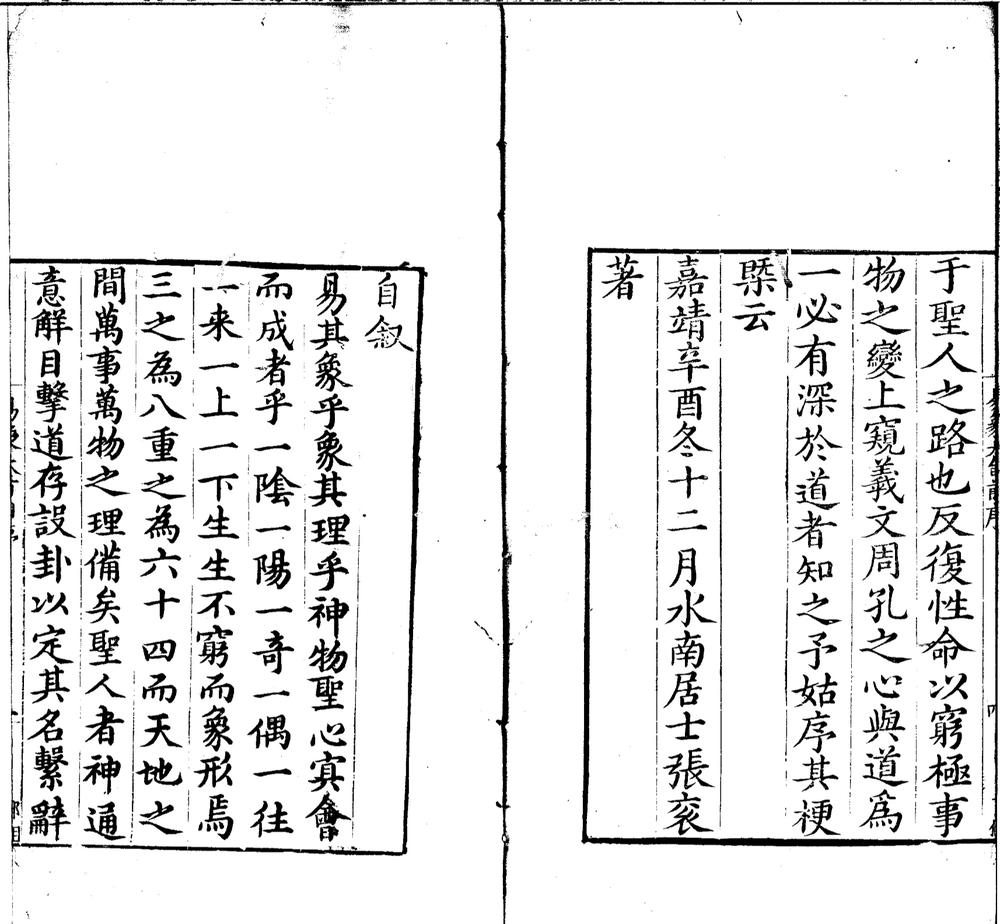 于聖人之路也反復性命以窮極事
物之變上窺羲文周孔之心與道爲
一必有深於道者知之予姑序其梗
槩云
嘉靖辛酉冬十二月水南居士張衮
著
自叙
易其象乎象其理乎神物聖心寘會
而成者乎一陰一陽一奇一偶一往
一来一上一下生生不窮而象形焉
三之為八重之為六十四而天地之
間萬事萬物之理備矣聖人者神通
意解目擊道存設卦以定其名繫辭